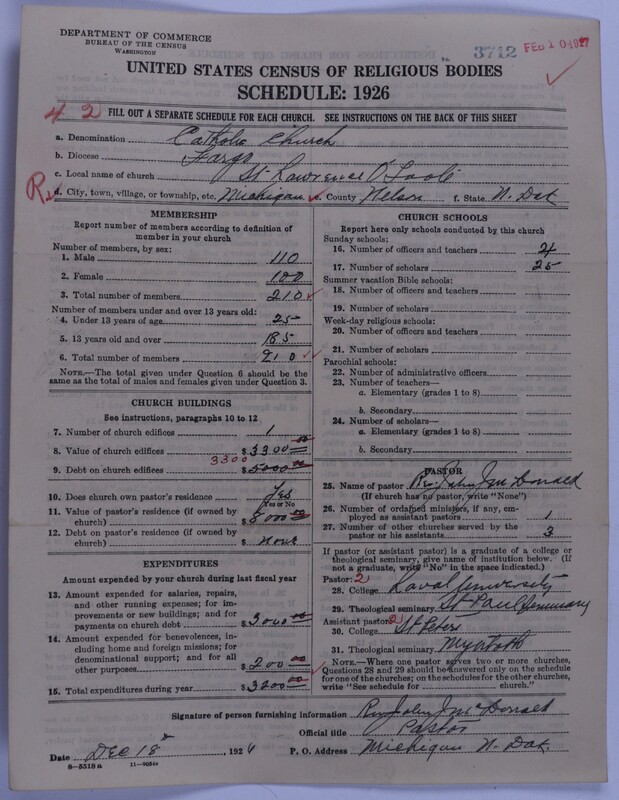 DEPARTMENT OF COMMERCE
BUREAU OF THE CENSUS
WASHINGTON
3712
FEB 10 1927
UNITED STATES CENSUS OF RELIGIOUS BODIES
SCHEDULE: 1926
42
FILL OUT A SEPARATE SCHEDULE FOR EACH CHURCH. SEE INSTRUCTIONS ON THE BACK OF THIS SHEET
a. Denomination Catholic Church
b. Diocese Fargo
c. Local name of church St. Lawrence O'Toole
d. City, town, village, or township, etc. Michigan e. County Nelson f. State N. Dak
MEMBERSHIP
Report number of members according to definition of member in your church
Number of members, by sex:
1. Male 110
2. Female 100
3. Total number of members 210
Number of members under and over 13 years old:
4. Under 13 years of age 25
5. 13 years old and over 185
6. Total number of members 210
NOTE.—The total given under Question 6 should be the same as the total of males and females given under Question 3.
CHURCH BUILDINGS
See instructions, paragraphs 10 to 12
7. Number of church edifices 1
8. Value of church edifices $3300.00
3300
9. Debt on church edifices $5000.00
10. Does church own pastor's residence Yes
Yes or No
11. Value of pastor's residence (if owned by church) $8000.00
12. Debt on pastor's residence (if owned by church) $ None
EXPENDITURES
Amount expended by your church during last fiscal year
13. Amount expended for salaries, repairs, and other running expenses; for improvements or new buildings; and for payments on church debt $3000.00
14. Amount expended for benevolences, including home and foreign missions; for denominational support; and for all other purposes $200.00
15. Total expenditures during year $3200.00
CHURCH SCHOOLS
Report here only schools conducted by this church
Sunday schools:
16. Number of officers and teachers 2
17. Number of scholars 25
Summer vacation Bible schools:
18. Number of officers and teachers
19. Number of scholars
Week-day religious schools:
20. Number of officers and teachers
21. Number of scholars
Parochial schools:
22. Number of administrative officers
23. Number of teachers—
a. Elementary (grades 1 to 8)
b. Secondary
24. Number of scholars—
a. Elementary (grades 1 to 8)
b. Secondary
PASTOR
25. Name of pastor Rev John J McDonald
(If church has no pastor, write "None")
26. Number of ordained ministers, if any, employed as assistant pastors 1
27. Number of other churches served by the pastor or his assistants 3
If pastor (or assistant pastor) is a graduate of a college or theological seminary, give name of institution below. (If not a graduate, write "No" in the space indicated.)
Pastor: 2
28. College Laval University
29. Theological seminary St Paul Seminary
Assistant pastor: 2
30. College St Peters
31. Theological seminary
NOTE.—Where one pastor serves two or more churches, Questions 28 and 29 should be answered only on the schedule for one of the churches; on the schedules for the other churches, write "See schedule for church."
Signature of person furnishing information Rev John J McDonald
Official title Pastor
Date Dec 18, 1926 P. O. Address Michigan N. Dak.
8—5518 a 11—9034a